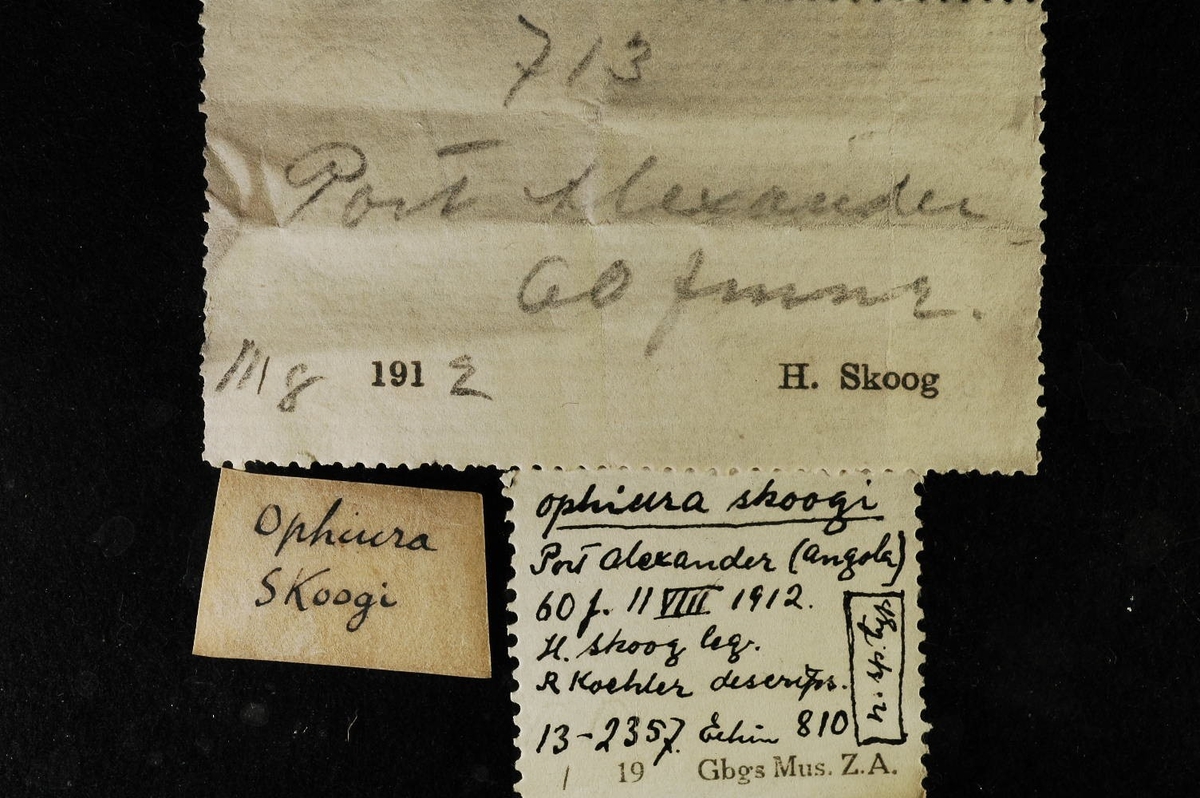 713
Port Alexander
60 fmnr.
11/8 1912 H. Skoog
Ophiura
SKoogi
Ophiura skoogi
Port Alexander (Angola)
60 f. 11 VIII 1912.
H. Skoog leg.
R Koehler descrips.
13-2357. Echin 810
n. sp. typ.
19 Gbgs Mus. Z.A.